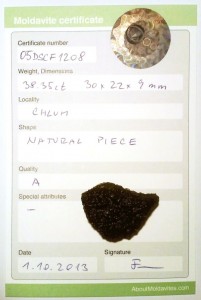 Moldavite certificate
Certificate number
05DSCF1208
Weight, Dimensions
38.55ct 30x22x9mm
Locality
CHLUM
Shape
NATURAL PIECE
Quality
A
Special attributes
–
Date
Signature
1.10.2013
AboutMoldavites.com